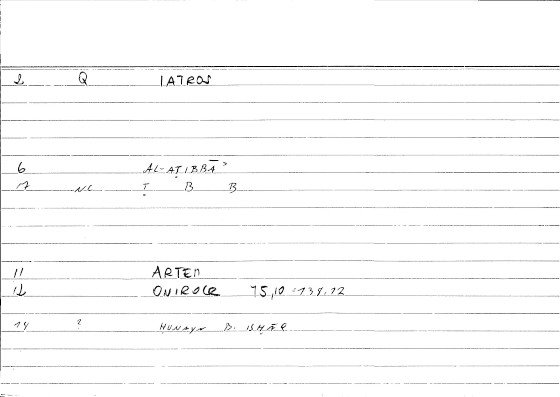 2 Q IATROS
6 AL-AṬIBBĀʾ
17 NC Ṭ B B
11 ARTEM
12 ONIROCR 75,10 = 139,12
14 ? ḤUNAYN B. ISḤĀQ